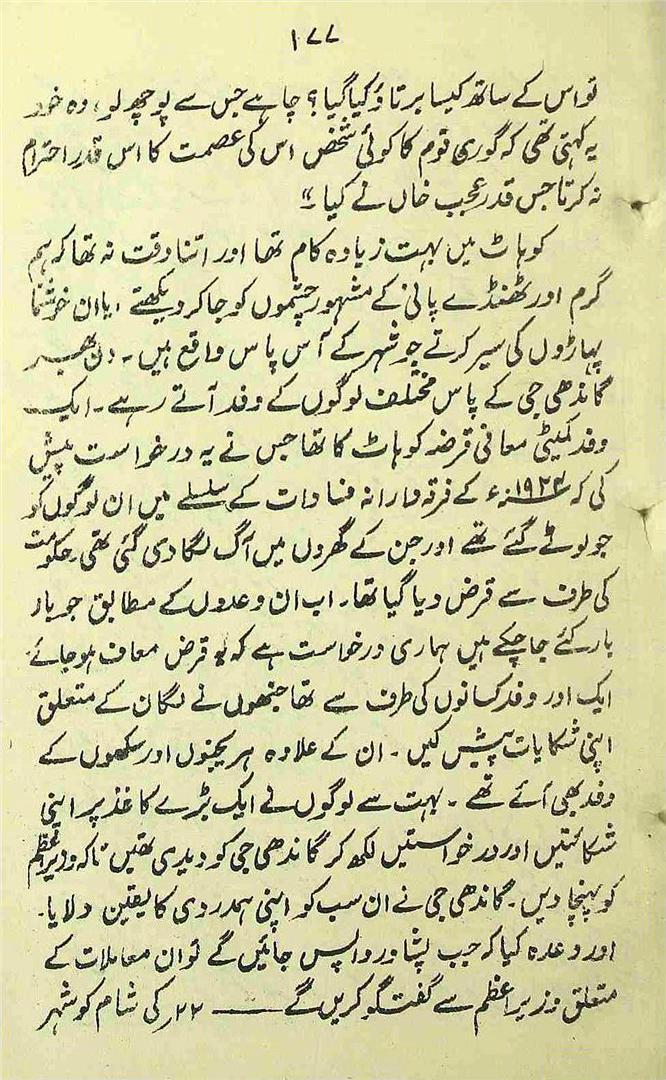 ۱۷۷
تو اس کے ساتھ کیسا برتاؤ کیا گیا؟ چاہے جس سے پوچھ لو، وہ خود
یہ کہتی تھی کہ گوری قوم کا کوئی شخص اس کی عصمت کا اس قدر احترام
نہ کرتا جس قدر عجب خاں نے کیا۔"
کوہاٹ میں بہت زیادہ کام تھا اور اتنا وقت نہ تھا کہ ہم
گرم اور ٹھنڈے پانی کے مشہور چشموں کو جا کر دیکھتے، یا ان خوشنما
پہاڑوں کی سیر کرتے جو شہر کے آس پاس واقع ہیں۔ دن بھر
گاندھی جی کے پاس مختلف لوگوں کے وفد آتے رہے۔ ایک
وفد کمیٹی معافی قرضہ کوہاٹ کا تھا جس نے یہ درخواست پیش
کی کہ ۱۹۲۴ء کے فرقہ دارانہ فسادات کے سلسلے میں ان لوگوں کو
جو لوٹے گئے تھے اور جن کے گھروں میں آگ لگا دی گئی تھی حکومت
کی طرف سے قرض دیا گیا تھا۔ اب ان وعدوں کے مطابق جو بار
بار کئے جا چکے ہیں ہماری درخواست ہے کہ یہ قرض معاف ہو جائے۔
ایک اور وفد کسانوں کی طرف سے تھا جنھوں نے لگان کے متعلق
اپنی شکایات پیش کیں۔ ان کے علاوہ ہریجنوں اور سکھوں کے
وفد بھی آئے تھے۔ بہت سے لوگوں نے ایک بڑے کاغذ پر اپنی
شکائتیں اور درخواستیں لکھ کر گاندھی جی کو دیدی تھیں تاکہ وزیر اعظم
کو پہنچا دیں۔ گاندھی جی نے ان سب کو اپنی ہمدردی کا یقین دلایا۔
اور وعدہ کیا کہ جب پشاور واپس جائیں گے تو ان معاملات کے
متعلق وزیر اعظم سے گفتگو کریں گے —— ۲۲ کی شام کو شہر